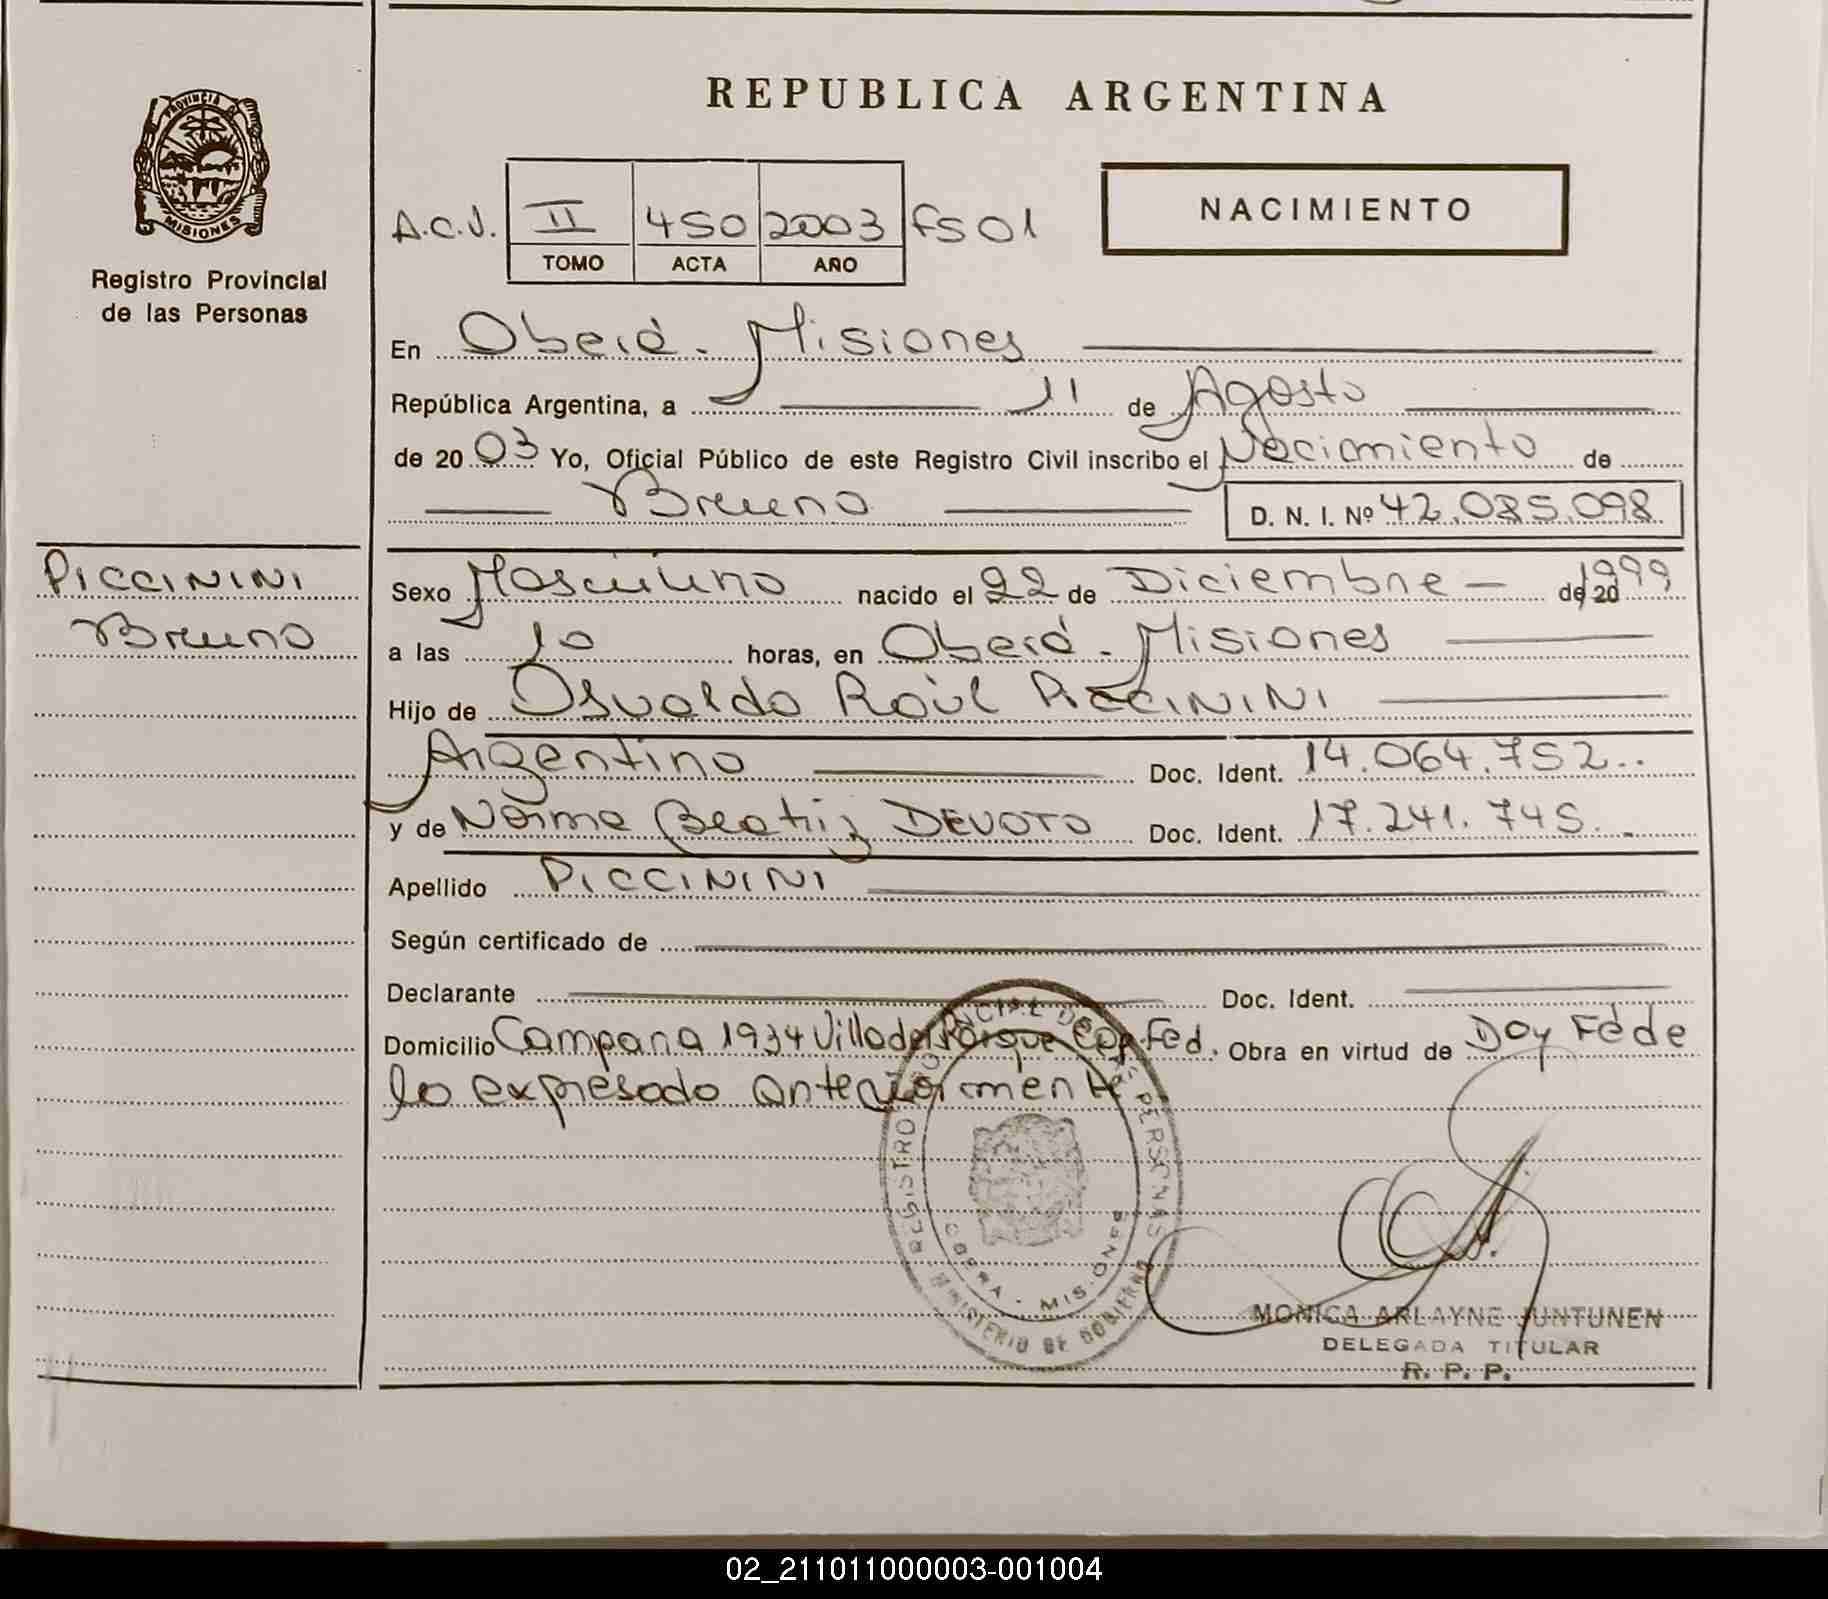 REPUBLICA ARGENTINA
PROVINCIA DE
MISIONES
Registro Provincial
de las Personas
NACIMIENTO
A.C.V. II 450 2003 FS 01
TOMO ACTA AÑO
En Oberá - Misiones
República Argentina, a 11 de Agosto
de 20 03 Yo, Oficial Público de este Registro Civil inscribo el Nacimiento de
Bruno D. N. I. Nº 42.085.098
PICCININI
Bruno
Sexo Masculino nacido el 22 de Diciembre de 20 1999
a las 10 horas, en Oberá - Misiones
Hijo de Osvaldo Raúl PICCININI
Argentino Doc. Ident. 14.064.752
y de Norma Beatriz DEVOTO Doc. Ident. 17.241.745
Apellido PICCININI
Según certificado de
Declarante Doc. Ident.
Domicilio Campana 1934 Villa del Parque Cap. Fed. Obra en virtud de Doy Fé de
lo expresado anteriormente
REGISTRO PROVINCIAL DE LAS PERSONAS
OBERA - MISIONES
MINISTERIO DE GOBIERNO
MONICA ARLAYNE JUNTUNEN
DELEGADA TITULAR
R. P. P.
02_211011000003-001004